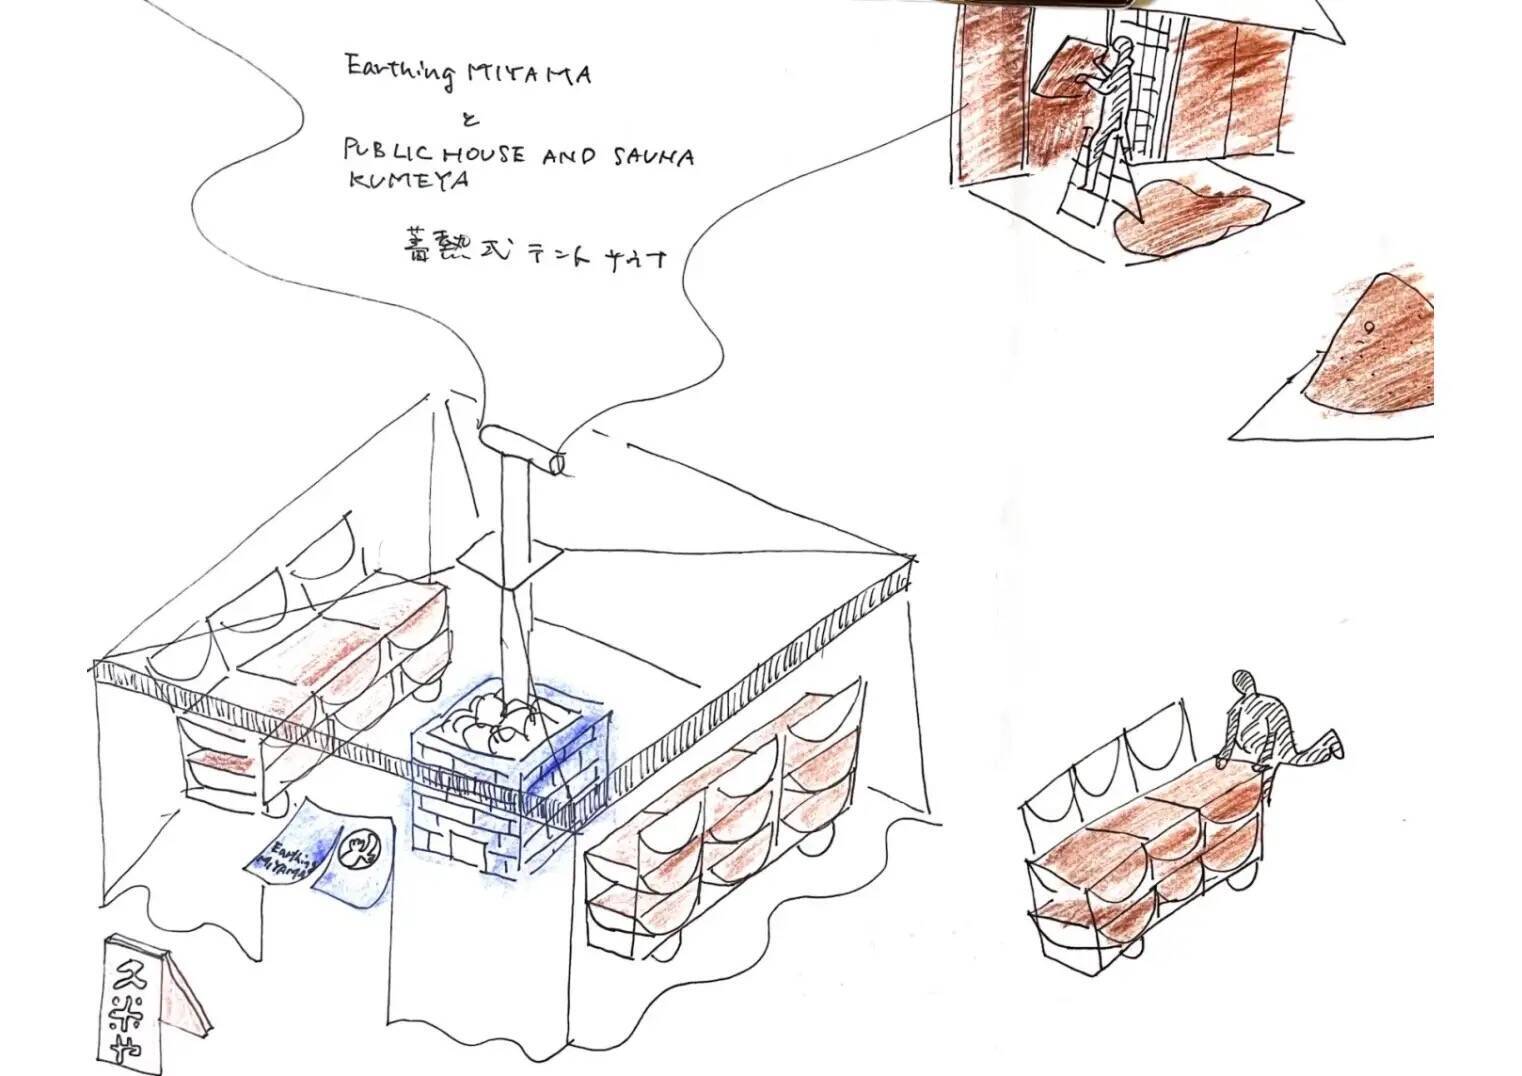 Earthing MIYAMA
と
PUBLIC HOUSE AND SAUNA
KUMEYA
蓄熱式テントサウナ
Earthing
MIYAMA
久米や